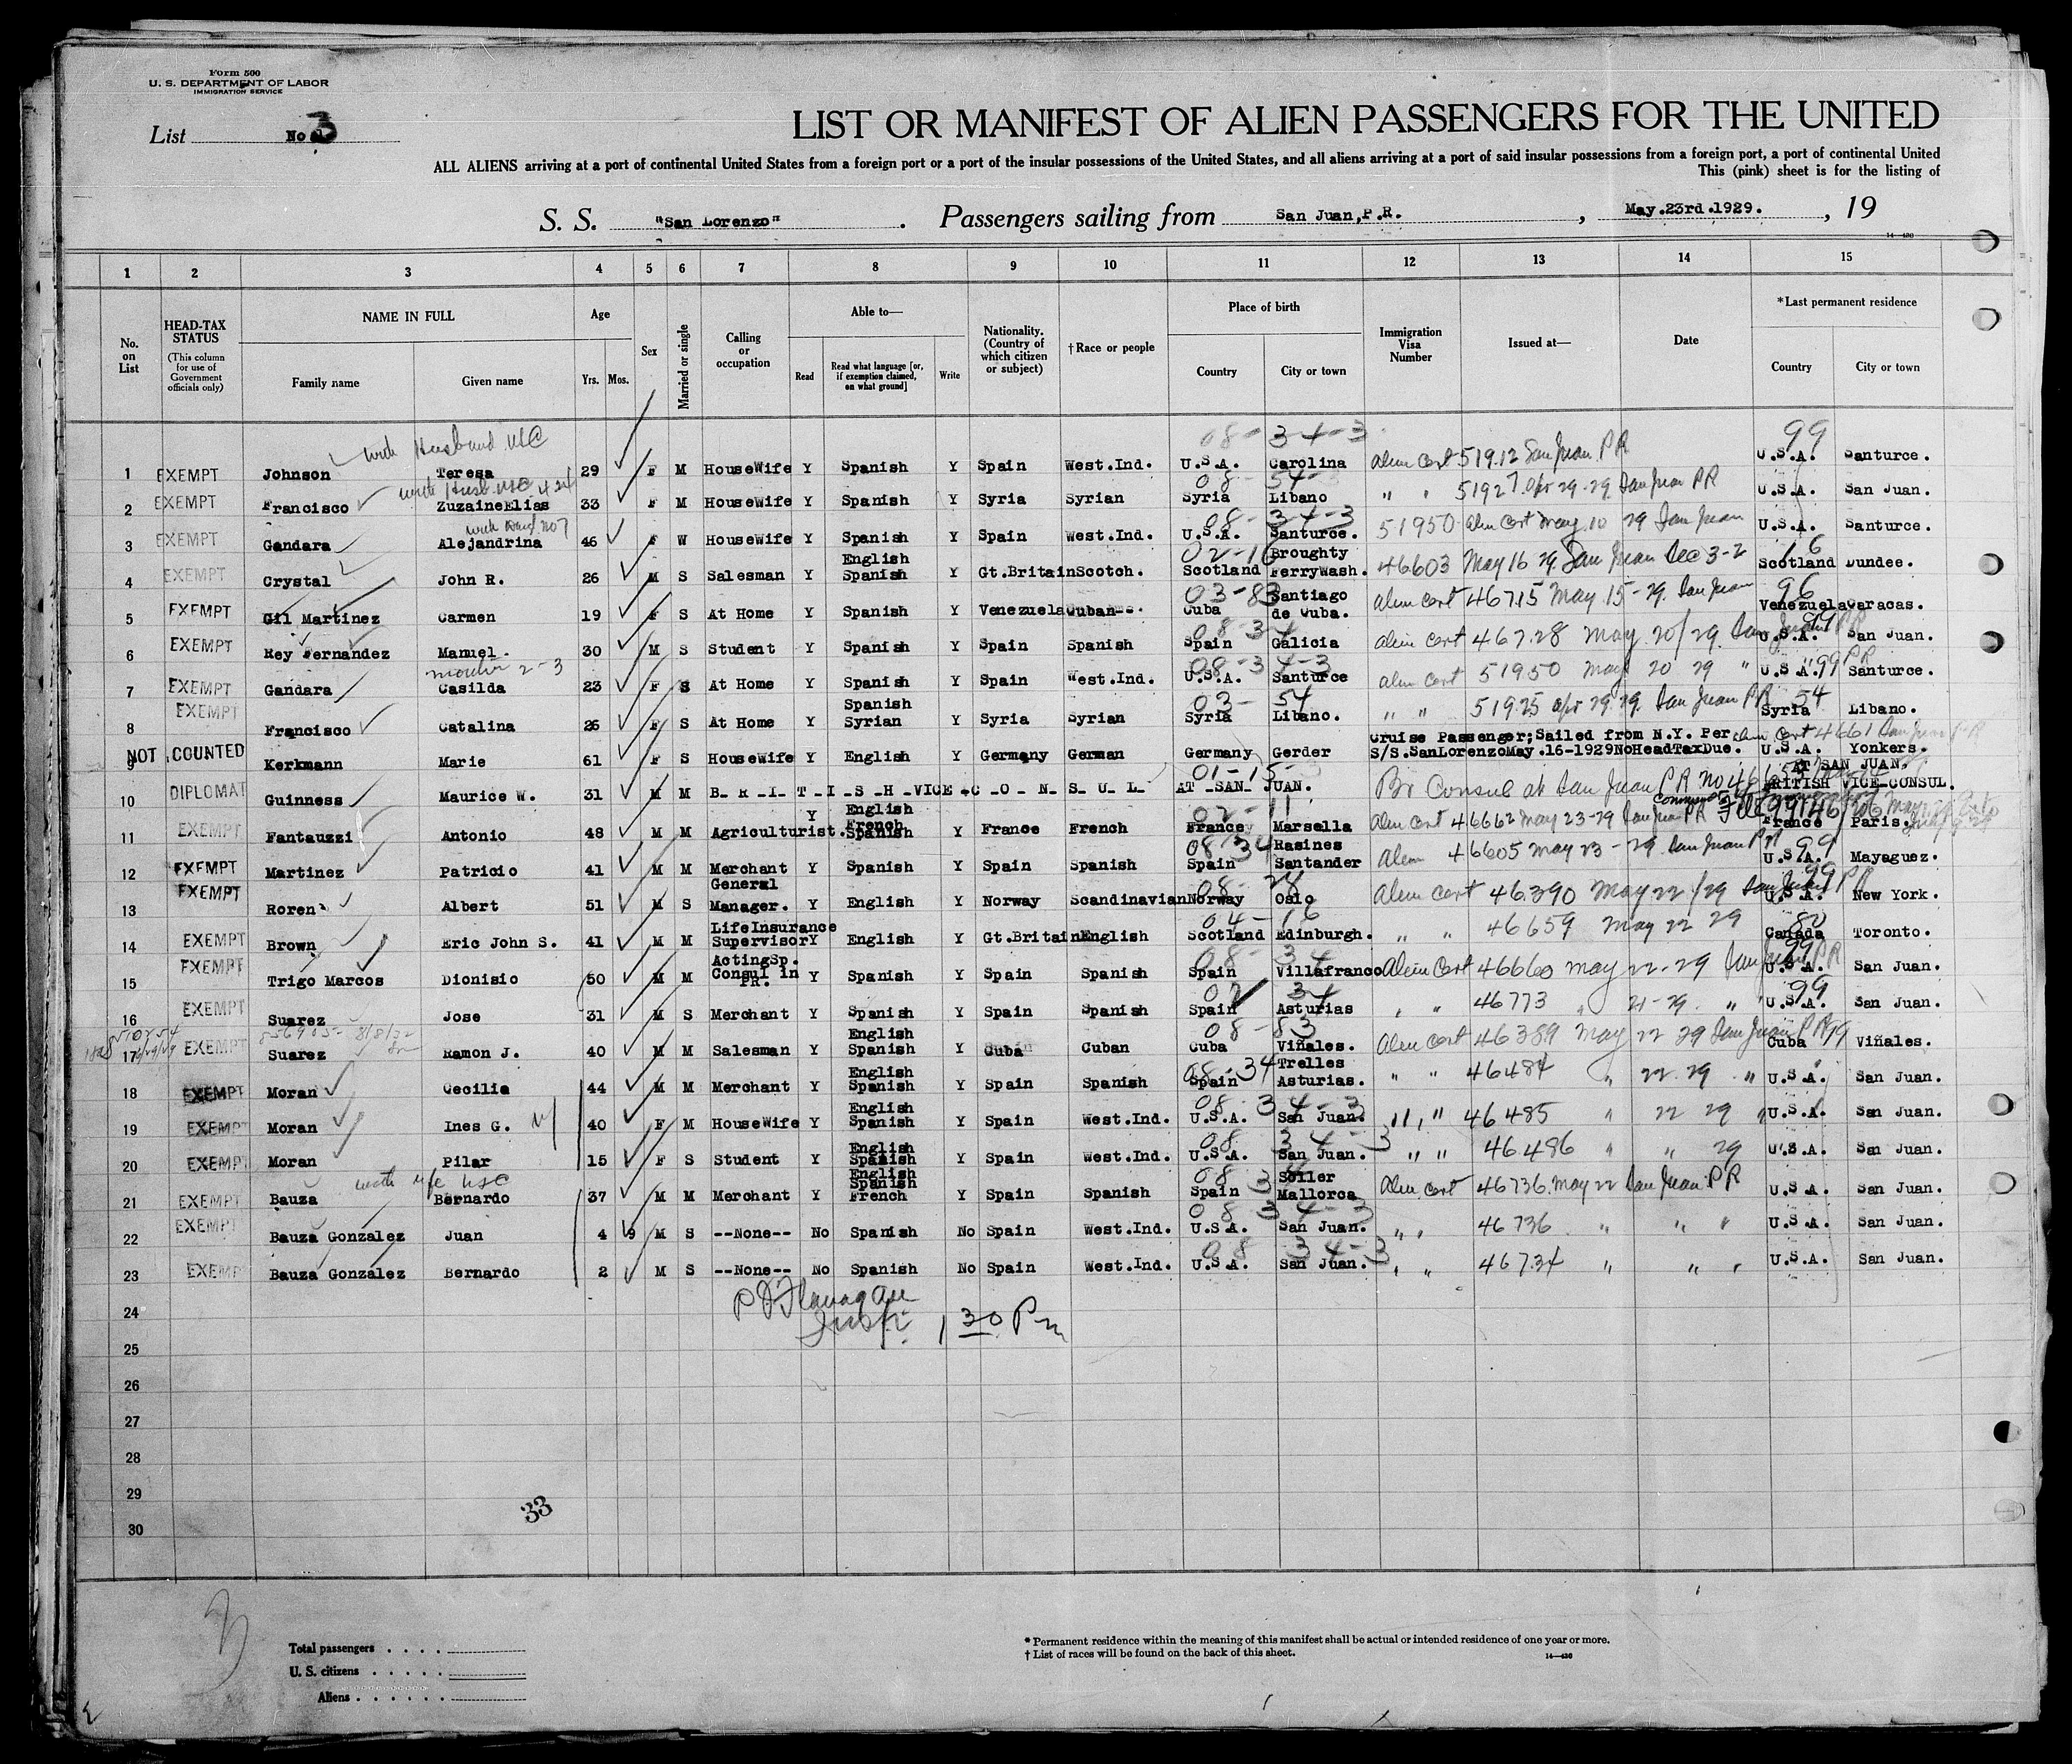 Form 500
U. S. DEPARTMENT OF LABOR
IMMIGRATION SERVICE
List No 3
LIST OR MANIFEST OF ALIEN PASSENGERS FOR THE UNITED
ALL ALIENS arriving at a port of continental United States from a foreign port or a port of the insular possessions of the United States, and all aliens arriving at a port of said insular possessions from a foreign port, a port of continental United
This (pink) sheet is for the listing of
S. S. "San Lorenzo" . Passengers sailing from San Juan, P.R. , May.23rd.1929. , 19
14—430
1 2 3 4 5 6 7 8 9 10 11 12 13 14 15
No. on List HEAD-TAX STATUS (This column for use of Government officials only) NAME IN FULL Family name Given name Age Yrs. Mos. Sex Married or single Calling or occupation Able to— Read Read what language [or, if exemption claimed, on what ground] Write Nationality. (Country of which citizen or subject) † Race or people Place of birth Country City or town Immigration Visa Number Issued at— Date * Last permanent residence Country City or town
with Husband USC 08-34-3 99
1 EXEMPT Johnson Teresa 29 F M HouseWife Y Spanish Y Spain West.Ind. U.S.A. Carolina Alien Cert 51912 San Juan PR U.S.A. Santurce.
with Husb. USC 08-54-
2 EXEMPT Francisco ZuzaineElias 33 F M HouseWife Y Spanish Y Syria Syrian Syria Libano " " 51927 Apr 29-29 San Juan PR U.S.A. San Juan.
08-34-3
3 EXEMPT Gandara Alejandrina 46 F W HouseWife Y Spanish Y Spain West.Ind. U.S.A. Santurce. 51950 Alien Cert May 10 29 San Juan U.S.A. Santurce.
02-16 16
4 EXEMPT Crystal John R. 26 M S Salesman Y English Spanish Y Gt.Britain Scotch. Scotland Broughty FerryWash. 46603 May 16 29 San Juan Dec 3-2 Scotland Dundee.
03-83 96
5 EXEMPT Gil Martinez Carmen 19 F S At Home Y Spanish Y Venezuela Cuban Cuba Santiago de Cuba. Alien Cert 46715 May 15-29 San Juan Venezuela Caracas.
08-34 99
6 EXEMPT Rey Fernandez Manuel 30 M S Student Y Spanish Y Spain Spanish Spain Galicia Alien Cert 46728 May 20/29 San Juan PR U.S.A. San Juan.
mother 2-3 08-34-3 99 PR
7 EXEMPT Gandara Casilda 23 F S At Home Y Spanish Y Spain West.Ind. U.S.A. Santurce Alien Cert 51950 May 20 29 " U.S.A. Santurce.
03-54 54
8 EXEMPT Francisco Catalina 26 F S At Home Y Spanish Syrian Y Syria Syrian Syria Libano. " " 51925 Apr 29 29 San Juan PR Syria Libano.
9 NOT COUNTED Kerkmann Marie 61 F S HouseWife Y English Y Germany German Germany Gerder Cruise Passenger;Sailed from N.Y. Per S/S.SanLorenzoMay.16-1929NoHeadTaxDue. U.S.A. Yonkers.
01-15-
10 DIPLOMAT Guinness Maurice W. 31 M M B-R-I-T-I-S-H-VICE-C-O-N-S-U-L- AT-SAN-JUAN. Br Consul at San Juan PR AT SAN JUAN. BRITISH VICE-CONSUL.
02-11
11 EXEMPT Fantauzzi Antonio 48 M M Agriculturist. Y English French Spanish Y France French France Marsella Alien Cert 46662 May 23-29 San Juan PR France Paris.
08-34 99
12 EXEMPT Martinez Patricio 41 M M Merchant Y Spanish Y Spain Spanish Spain Rasines Santander Alien 46605 May 23-29 San Juan PR U.S.A. Mayaguez.
08-28 99
13 EXEMPT Roren Albert 51 M S General Manager. Y English Y Norway Scandinavian Norway Oslo Alien Cert 46390 May 22/29 San Juan PR U.S.A. New York.
04-16 80
14 EXEMPT Brown Eric John S. 41 M M LifeInsurance Supervisor Y English Y Gt.Britain English Scotland Edinburgh. " " 46659 May 22 29 Canada Toronto.
08-34 99
15 EXEMPT Trigo Marcos Dionisio 50 M M ActingSp. Consul in PR. Y Spanish Y Spain Spanish Spain Villafranco Alien Cert 46660 May 22-29 San Juan PR U.S.A. San Juan.
02 34 99
16 EXEMPT Suarez Jose 31 M S Merchant Y Spanish Y Spain Spanish Spain Asturias " " 46773 " 21-29 " U.S.A. San Juan.
08-83
17 EXEMPT Suarez Ramon J. 40 M M Salesman Y English Spanish Y Cuba Cuban Cuba Viñales. Alien Cert 46389 May 22 29 San Juan PR Cuba Viñales.
08-34
18 EXEMPT Moran Cecilia 44 M M Merchant Y English Spanish Y Spain Spanish Spain Trelles Asturias. " " 46484 " 22 29 " U.S.A. San Juan.
08-34-3
19 EXEMPT Moran Ines G. 40 F M HouseWife Y English Spanish Y Spain West.Ind. U.S.A. San Juan. " " 46485 " 22 29 " U.S.A. San Juan.
08 34-3
20 EXEMPT Moran Pilar 15 F S Student Y English Spanish Y Spain West.Ind. U.S.A. San Juan. " " 46486 " " 29 U.S.A. San Juan.
with wife USC 08 34
21 EXEMPT Bauza Bernardo 37 M M Merchant Y English Spanish French Y Spain Spanish Spain Soller Mallorca Alien Cert 46736 May 22 San Juan PR U.S.A. San Juan.
08 34-3
22 EXEMPT Bauza Gonzalez Juan 4 9 M S --None-- No Spanish No Spain West.Ind. U.S.A. San Juan. " " 46736 " " " U.S.A. San Juan.
08 34-3
23 EXEMPT Bauza Gonzalez Bernardo 2 M S --None-- No Spanish No Spain West.Ind. U.S.A. San Juan. " " 46734 " " " U.S.A. San Juan.
P J Flanagan
24
Insp. 1 30 Pm
25
26
27
28
29
33
30
Total passengers . . . .
U. S. citizens . . . . .
Aliens . . . . . .
* Permanent residence within the meaning of this manifest shall be actual or intended residence of one year or more.
† List of races will be found on the back of this sheet.
14—430